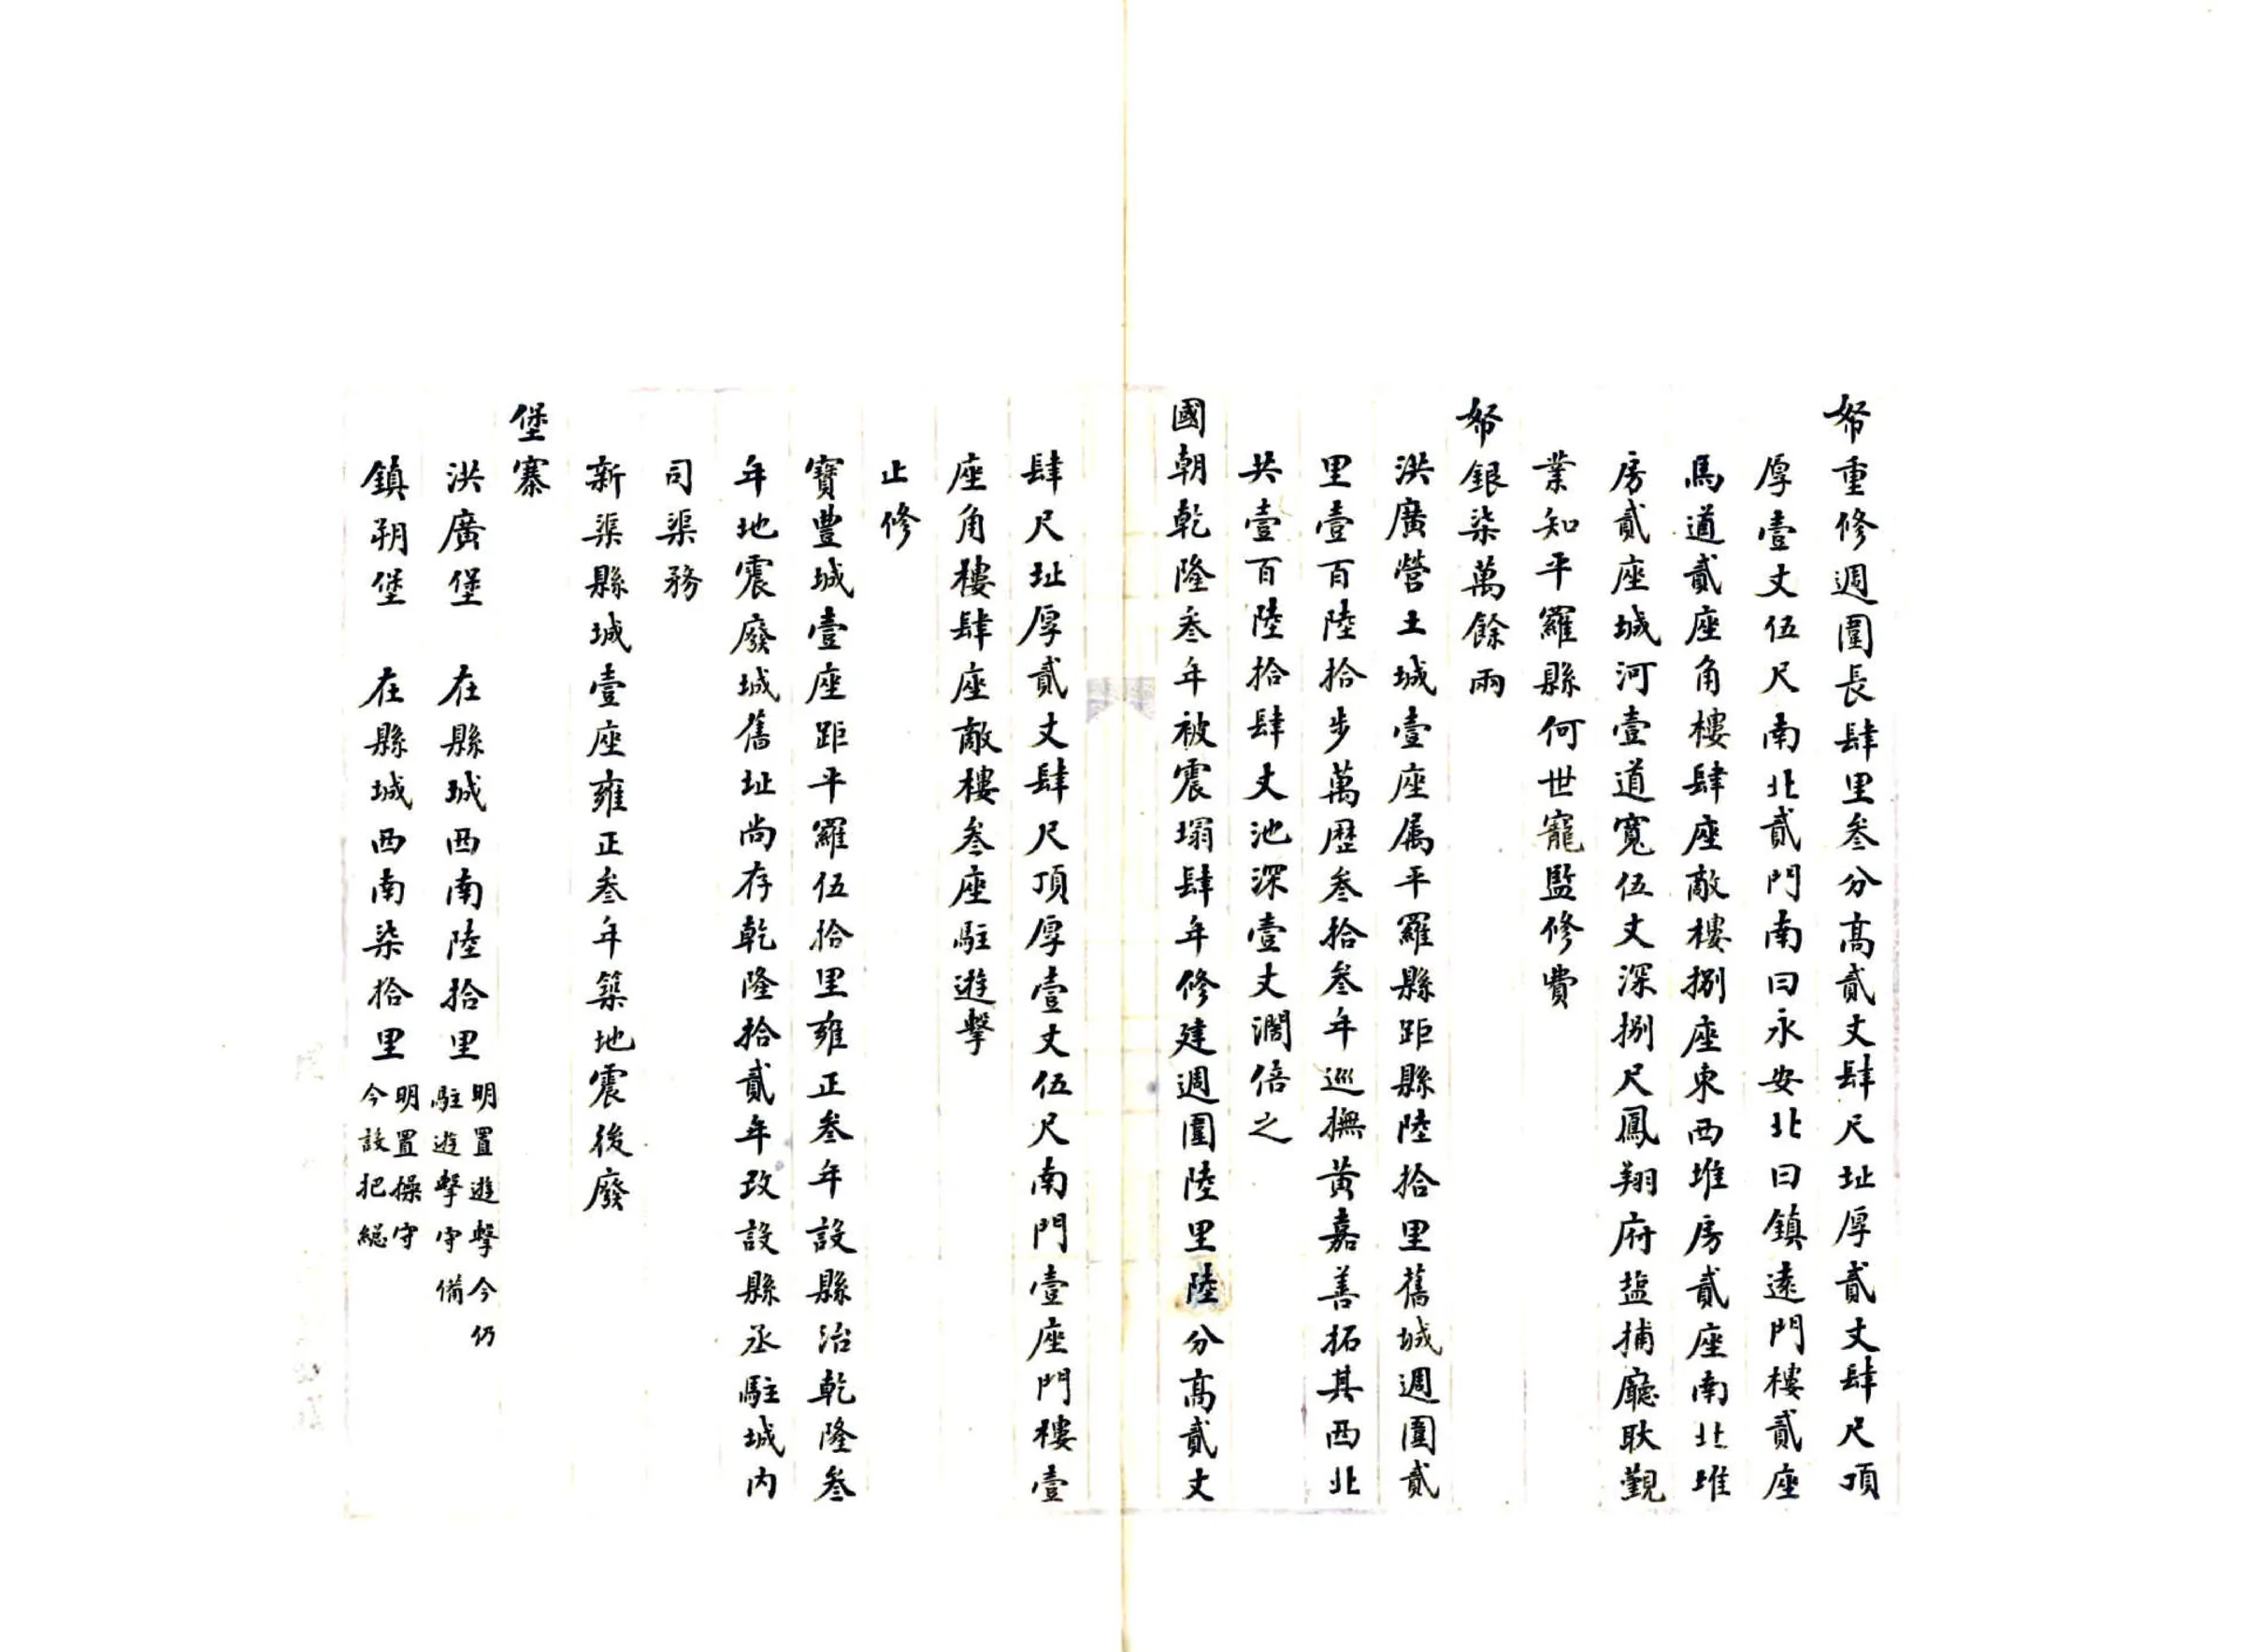 帑重修週圍長肆里叁分髙貳丈肆尺址厚貳丈肆尺頂
厚壹丈伍尺南北貳門南曰永安北曰鎮遠門樓貳座
馬道貳座角樓肆座敵樓捌座東西堆房貳座南北堆
房貳座城河壹道寬伍丈深捌尺鳳翔府盐捕廳耿覲
業知平羅縣何世寵監修費
帑銀柒萬餘兩
洪廣營土城壹座属平羅縣距縣陸拾里舊城週圍貳
里壹百陸拾步萬歷叁拾叁年巡撫黄嘉善拓其西北
共壹百陸拾肆丈池深壹丈濶倍之
國朝乾隆叁年被震塌肆年修建週圍陸里陸分髙貳丈
肆尺址厚貳丈肆尺頂厚壹丈伍尺南門壹座門樓壹
座角樓肆座敵樓叁座駐遊擊
止修
寶豐城壹座距平羅伍拾里雍正叁年設縣治乾隆叁
年地震廢城舊址尚存乾隆拾貳年改設縣丞駐城内
司渠務
新渠縣城壹座雍正叁年築地震後廢
堡寨
洪廣堡 在縣城西南陸拾里 明置遊擊今仍
駐遊擊守備
鎮朔堡 在縣城西南柒拾里 明置操守
今設把總